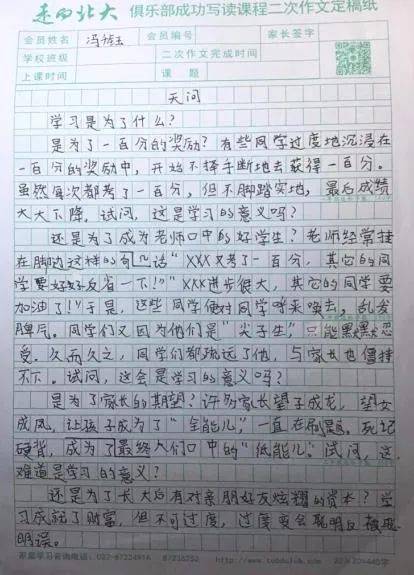 走向北大 俱乐部成功写读课程二次作文定稿纸
会员姓名 冯 玉 会员编号 家长签字
学校班级 二次作文完成时间
上课时间 课题
天问
学习是为了什么?
是为了一百分的奖励?有些同学过度地沉浸在
一百分的奖励中,开始不择手断地去获得一百分。
虽然每次都考了一百分,但不脚踏实地,最后成绩
大大下降。试问,这是学习的意义吗?
还是为了成为老师口中的好学生?老师经常挂
在脚边这样的句几话“XXX又考了一百分,其它的同
学要好好反省一下!”“XXX进步很大,其它的同学要
加油了!”于是,这些同学便对同学呼来唤去,乱发
脾气。同学们又因为他们是“尖子生”,只能默默忍
受。久而久之,同学们都疏远了他,与家长也僵持
不下。试问,这会是学习的意义吗?
是为了家长的期望?许多家长望子成龙,望女
成凤,让孩子成为了“全能儿”,一直在刷题、死记
硬背,成为了最终人们口中的“低能儿”。试问,这
难道是学习的意义?
还是为了长大后有对亲朋好友炫耀的资本?学
习成就了财富,但不可过度,过度变会聪明反被聪
明误。
家庭学习咨询电话:022-87234916 87218252 http://www.tobdclub.com 22×20=440字